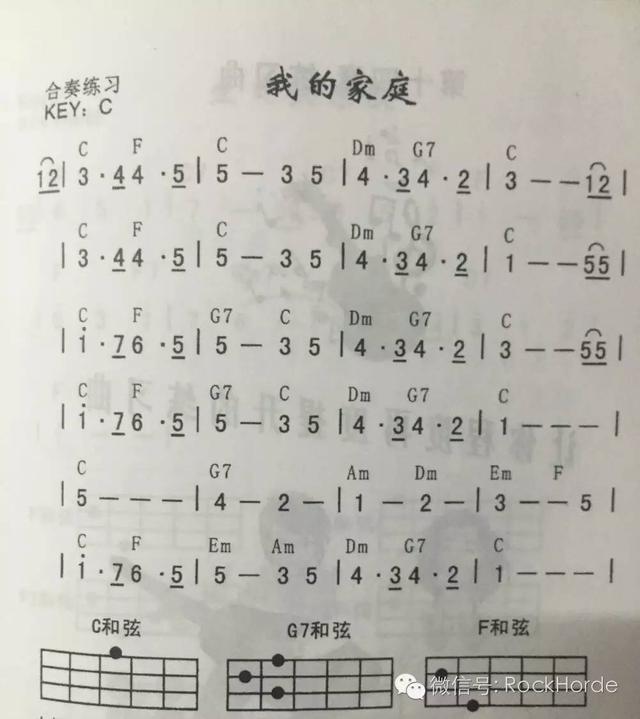 我的家庭
合奏练习
KEY: C
C F C Dm G7 C
12| 3·44·5 | 5 — 3 5 | 4·34·2 | 3 — — 12 |
C F C Dm G7 C
| 3·44·5 | 5 — 3 5 | 4·34·2 | 1 — — 55 |
C F G7 C Dm G7 C
| i·76·5 | 5 — 3 5 | 4·34·2 | 3 — — 55 |
C F G7 C Dm G7 C
| i·76·5 | 5 — 3 5 | 4·34·2 | 1 — — — |
C G7 Am Dm Em F
| 5 — — — | 4 — 2 — | 1 — 2 — | 3 — — 5 |
C F Em Am Dm G7 C
| i·76·5 | 5 — 3 5 | 4·34·2 | 1 — — — |
C和弦 G7和弦 F和弦
微信号: RockHorde